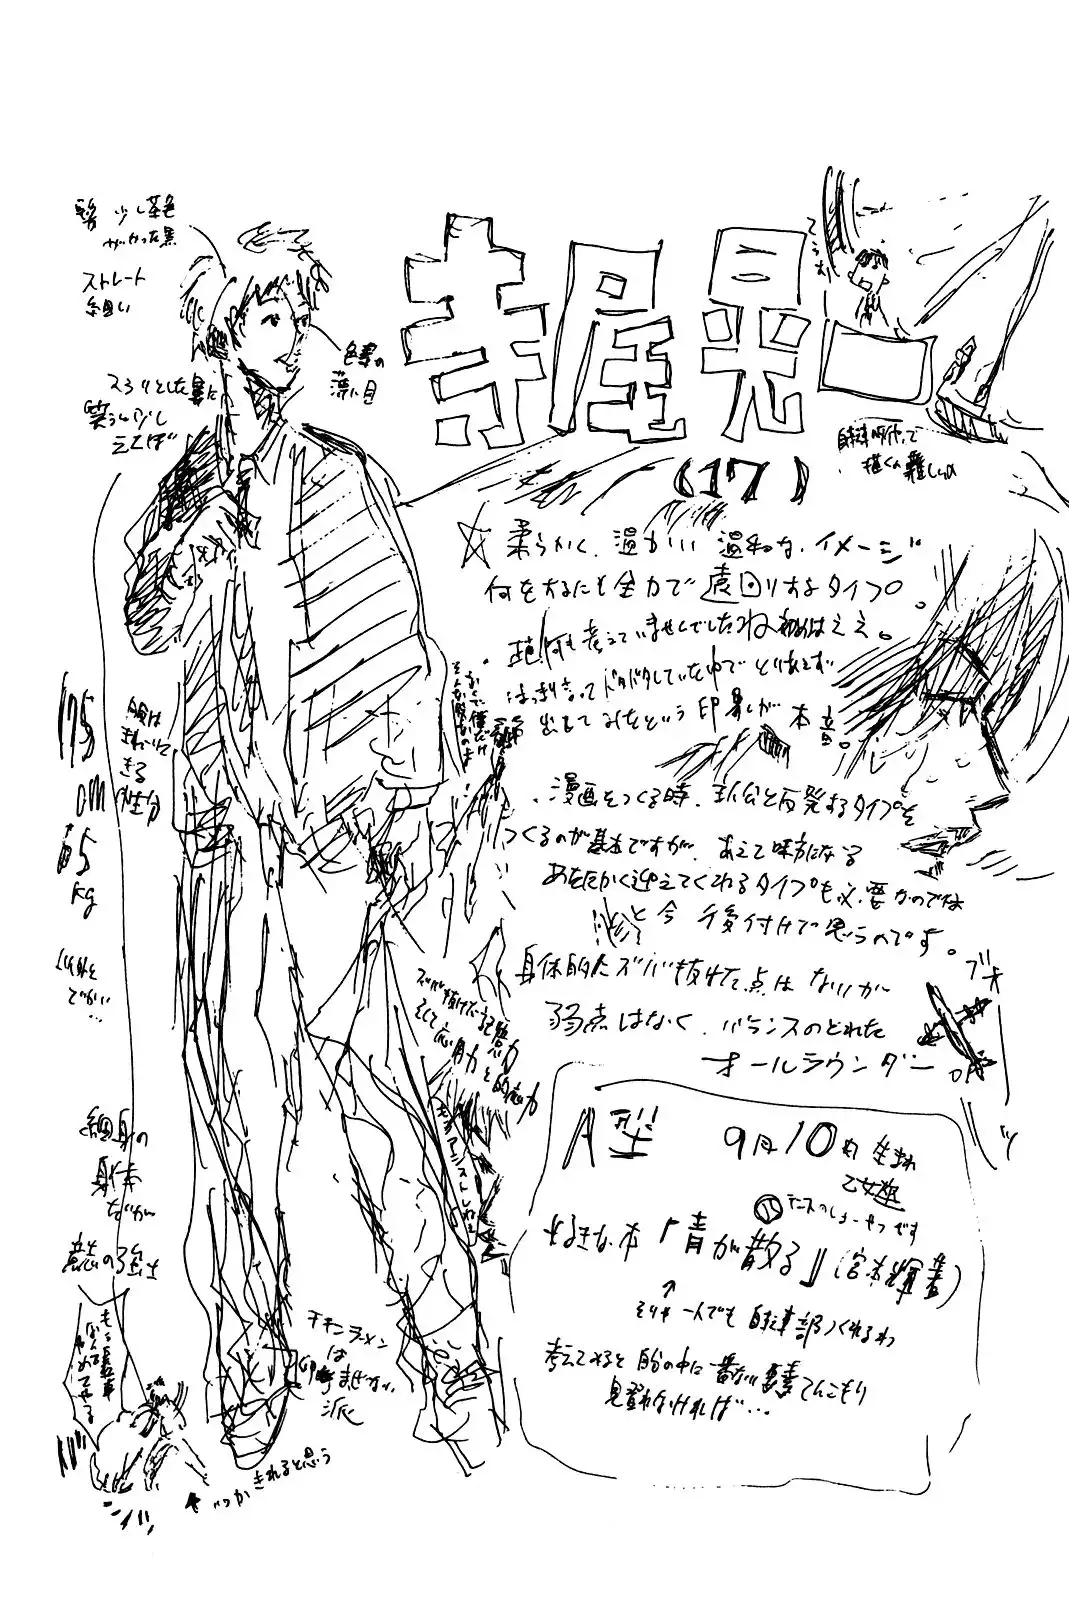 寺尾晃一
(17)
髪 少し茶色
がかった黒
ストレート
細い
スラリとした鼻に
笑うと少し
えくぼ
色素の
薄い目
自転車作って
描くの難しいわ
☆柔らかく、温かい 温和な、イメージ
何をするにも全力で遠回りするタイプ。
何も考えていませんでしたね 初めはええ。
はっきり言ってドタバタしていたのでとりあえず
出してみたという印象が 本音。
漫画をつくる時、主人公と反発するタイプを
つくるのが基本ですが、あえて味方になる
あたたかく迎えてくれるタイプも必要なのでは
と今 後付けで思うのです。
身体的にズバ抜けた点はないが
弱点はなく、バランスのとれた
オールラウンダー
175
cm
65
kg
以外と
でかい…
服は
きれいに
きる
性分
ズバ抜けた
そして
細身の
身体
だが
意志の強さ
チキンラーメン
は
卵まぜない
派
いつか きれると思う
A型 9月10日 生まれ
乙女座
テニスのしょーせつです
好きな本『青が散る』(宮本輝著)
そりゃ 一人でも 自転車部つくれるわ
考えてみると 自分の中に一番近い要素てんこもり
見登れなければ…